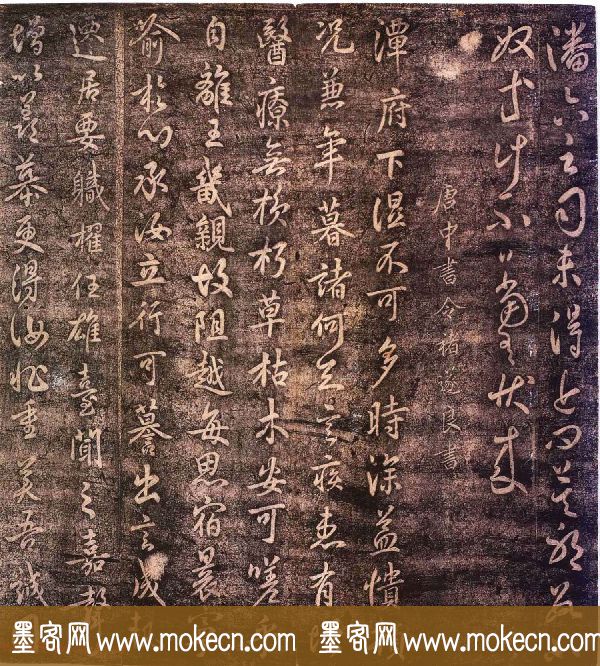 潘六云司未得近問莫
奴
唐中書令褚遂良書
潭府下濕不可多時深益憒
况兼年暮諸何足言疾患有
醫療無損朽草枯木安可嗟乎
自離王畿親故阻越每思宿曩
喻於心承汝立行可譽出言成軌
遷居要職擢任雄臺聞之嘉聲
增以羨慕更得汝 重美吾誠
墨客网 www.mokecn.com 墨客网 www.mokecn.com